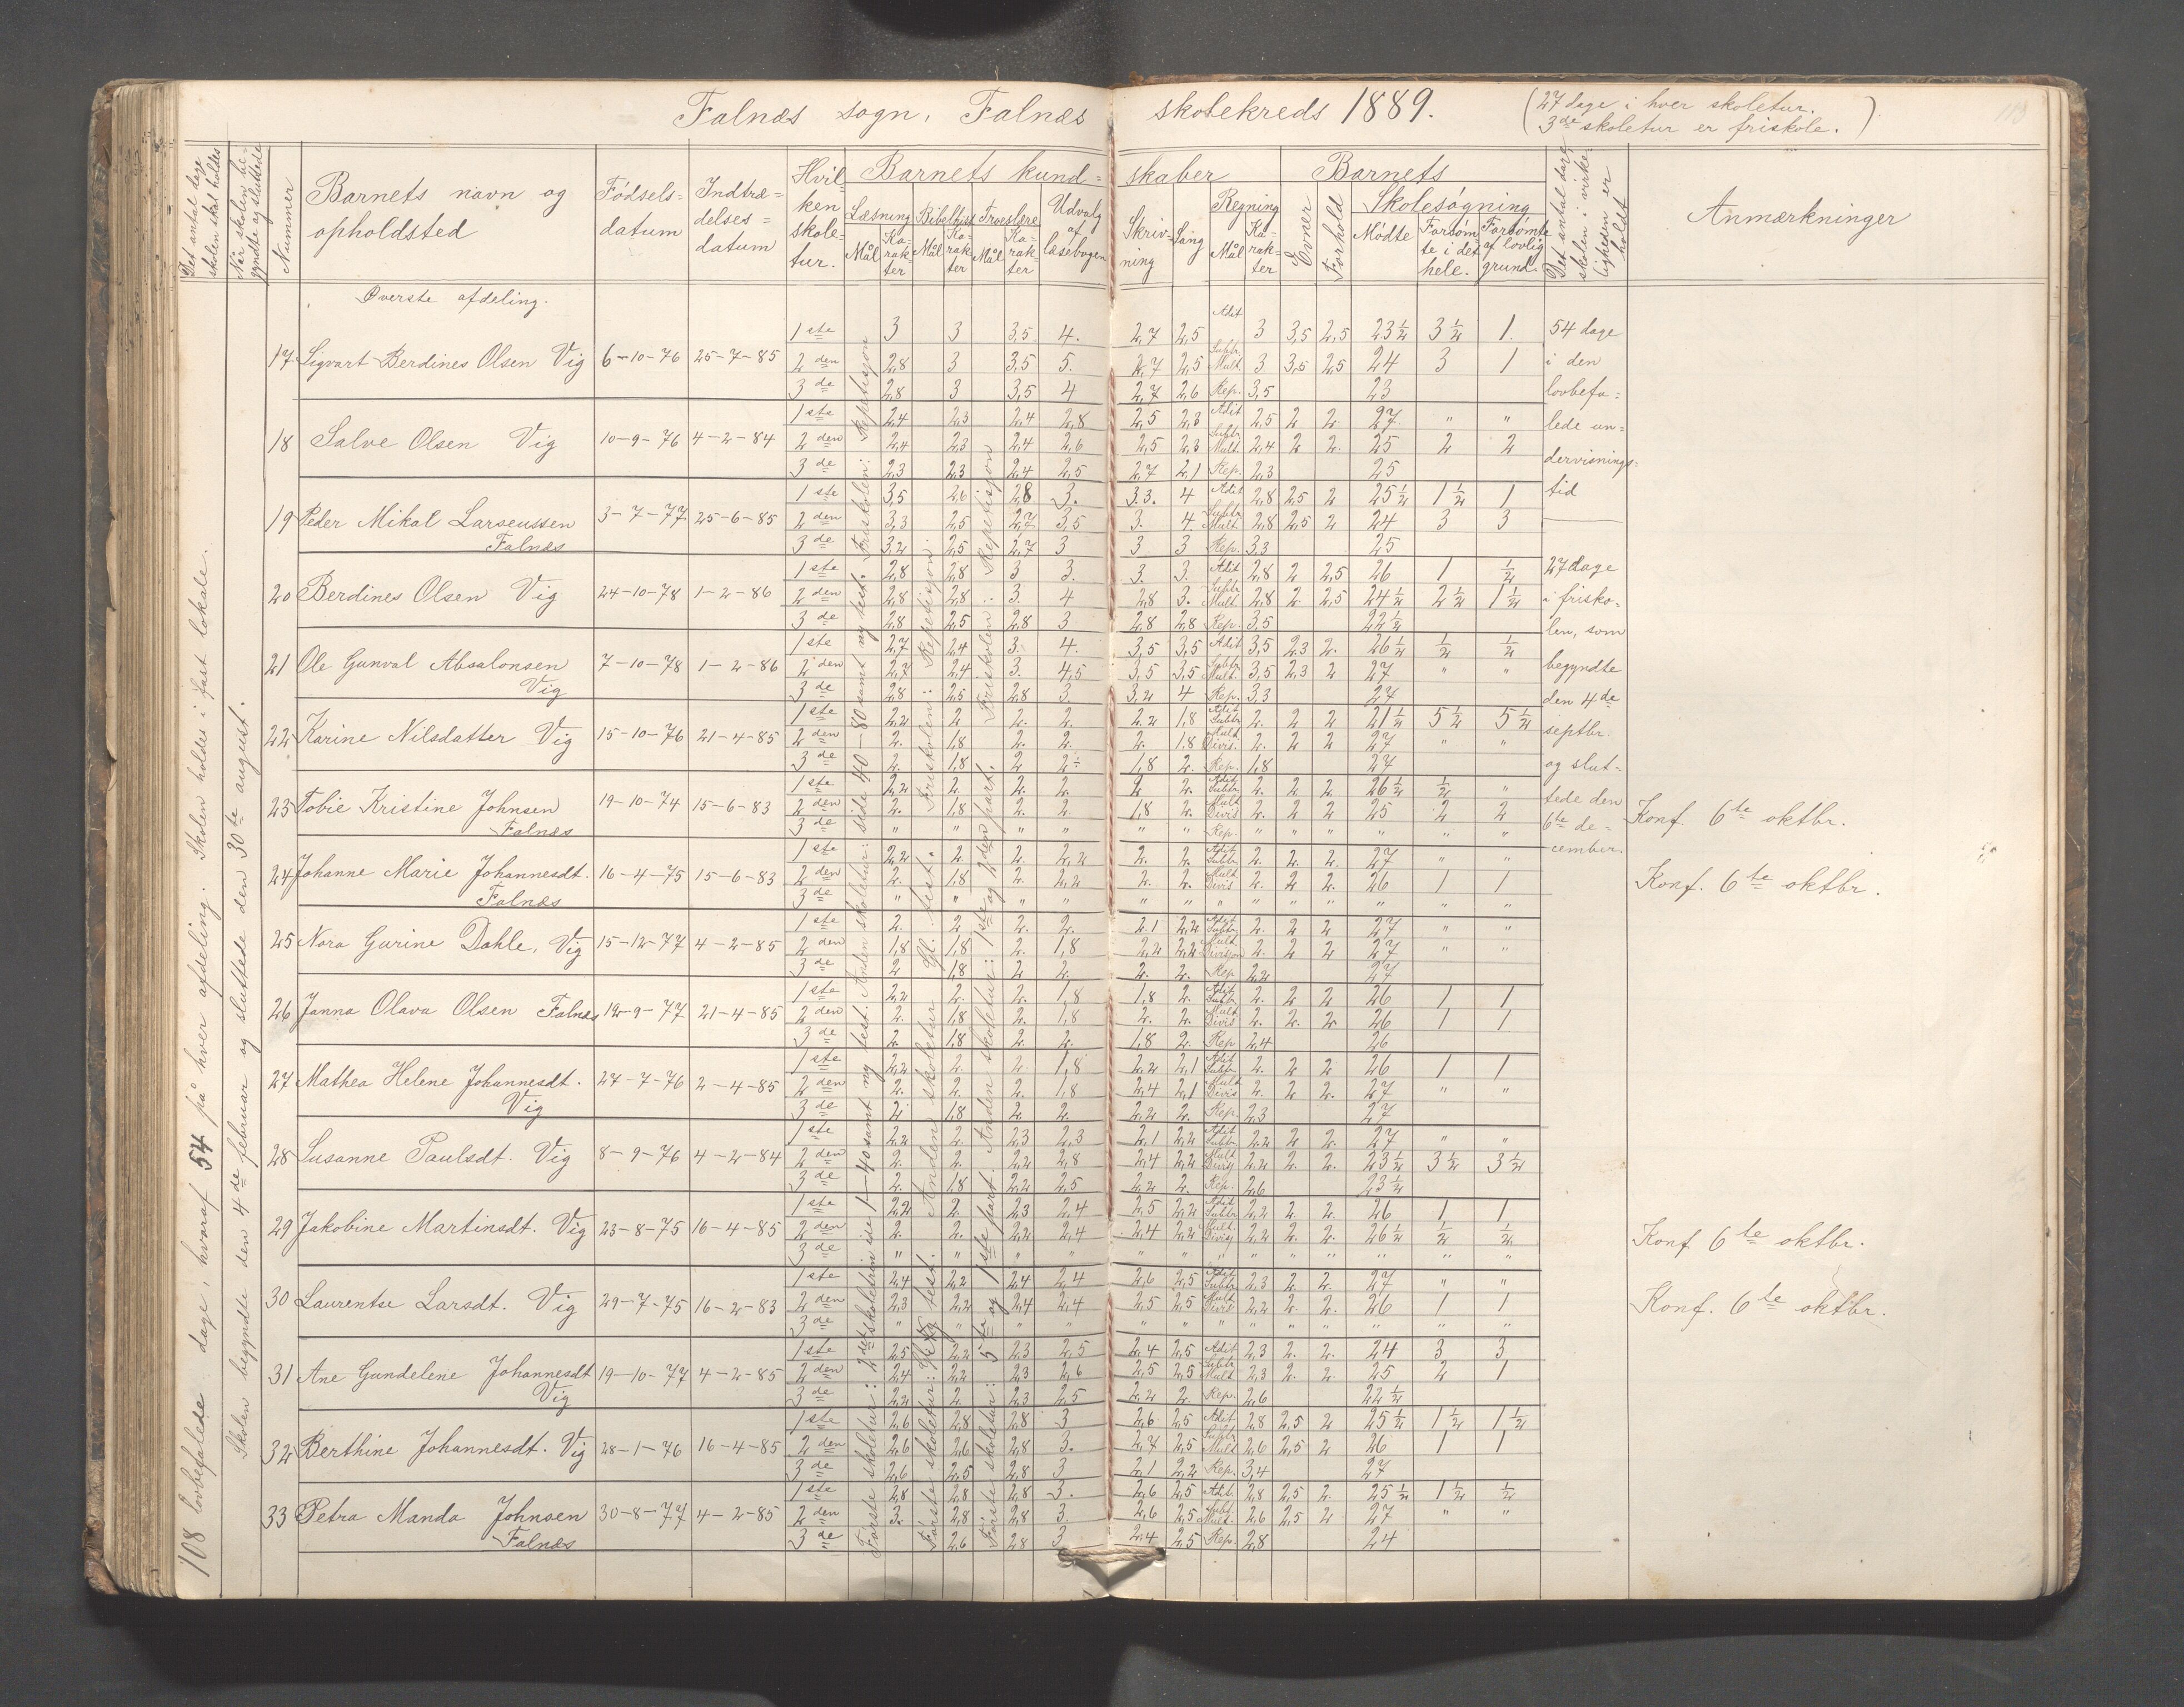 Falnæs sogn, Falnæs skolekreds 1889. (27 dage i hver skoletur.
3de skoletur er friskole.)
Det antal dage skolen skal holdes
Når skolen begyndte og sluttede
Nummer
Barnets navn og opholdsted
Fødselsdatum
Indtrædelsesdatum
Hvilken skoletur.
Barnets kundskaber
Læsning Mål Karakter
Bibelhist. Mål Karakter
Troeslære Mål Karakter
Udvalg af læsebogen
Skrivning
Sang
Regning Mål Karakter
Barnets
Evner
Forhold
Skolesøgning
Mødte
Forsømte i det hele.
Forsømte af lovlig grund.
Det antal dage skolen i virkeligheden er holdt
Anmærkninger
108 lovbefalede dage, hvoraf 54 på hver afdeling. Skolen holdes i fast lokale.
Skolen begyndte den 4de februar og sluttede den 30te august.
Øverste afdeling.
17 Sigvart Berdines Olsen Vig 6-10-76 25-7-85
1ste 3 3 3,5 4. 2,7 2,5 Adit 3 3,5 2,5 23½ 3½ 1.
2den 2,8 3 3,5 5. 2,7 2,5 Subtr Mult. 3 3,5 2,5 24 3 1
3de 2,8 3 3,5 4 2,7 2,6 Rep. 3,5 23
18 Salve Olsen Vig 10-9-76 4-2-84
1ste 2,4 2,3 2,4 2,8 2,5 2,3 Adit 2,5 2 2. 27 " "
2den 2,4 2,3 2,4 2,6 2,5 2,3 Subtr Mult. 2,4 2 2. 25 2 2
3de 2,3 2,3 2,4 2,5 2,7 2,1 Rep. 2,3 25
19 Peder Mikal Larseussen Falnæs 3-7-77 25-6-85
1ste 3,5 2,6 2,8 3. 3.3. 4 Adit 2,8 2,5 2 25½ 1½ 1
2den 3,3 2,5 2,7 3,5 3. 4. Subtr Mult. 2,8 2,5 2 24 3 3
3de 3,2 2,5 2,7 3 3 3 Rep. 3,3 25
20 Berdines Olsen Vig 24-10-78 1-2-86
1ste 2,8 2,8 3 3. 3. 3. Adit 2,8 2 2,5 26 1 ½
2den 2,8 2,8 3. 4 2,8 3. Subtr Mult. 2,8 2. 2,5 24½ 2½ 1½
3de 2,8 2,5 2,8 3 2,8 2,8 Rep. 3,5 22½
21 Ole Gunval Absalonsen Vig 7-10-78 1-2-86
1ste 2,7 2,4 3. 4. 3,5 3,5 Adit 3,5 2,3 2. 26½ ½ ½
2den 2,7 2,4 3. 4,5 3,5 3,5 Subtr Mult. 3,5 2,3 2 27 " "
3de 2,8 2,5 2,8 3 3,2 4 Rep. 3,3 27
22 Karine Nilsdatter Vig 15-10-76 21-4-85
1ste 2,2 2 2. 2. 2.2 1,8 Adit Subtr 2. 2 2 21½ 5½ 5½
2den 2. 1,8 2. 2. 2. 1,8 Mult Divis. 2. 2 2 27 " "
3de 2. 1,8 2 2 1,8 2. Rep. 1,8 27
23 Tobie Kristine Johnsen Falnæs 19-10-74 15-6-83
1ste 2,2 2. 2. 2. 2 2. Adit Subtr 2. 2 2. 26½ ½ "
2den 2. 1,8 2. 2. 1,8 2. Mult Divis 2. 2 2 25 2 2
3de " " " " " " Rep. " " " " " "
Konf. 6te oktbr.
24 Johanne Marie Johannesdt. Falnæs 16-4-75 15-6-83
1ste 2,2 2. 2. 2,2 2. 2. Adit Subtr 2. 2. 2. 27 " "
2den 2. 1,8 2. 2,2 2. 2. Mult Divis 2. 2 2. 26 1 1
3de " " " " " " " " " " " " "
Konf. 6te oktbr.
25 Nora Gurine Dahle, Vig 15-12-77 4-2-85
1ste 2. 2 2. 2. 2.1 2,2 Adit Subtr 2. 2 2 27 " "
2den 1,8 1,8 2. 1,8 2,2 2,2 Mult Divisjon 2. 2 2 27 " "
3de 2 1,8 2 2. 2. 2. Rep 2,2 27
26 Janna Olava Olsen Falnæs 12-9-77 21-4-85
1ste 2,2 2. 2. 1,8 1,8 2. Adit Subtr 2. 2 2 26 1 1
2den 2. 1,8 2. 1,8 2. 2. Mult Divis 2. 2. 2. 26 1 1
3de 2. 1,8 2. 2. 1,8 2. Rep 2,4 26
27 Mathea Helene Johannesdt. Vig 27-7-76 2-4-85
1ste 2,2 2. 2 1,8 2,2 2,1 Adit Subtr 2. 2 2 26 1 1
2den 2. 2. 2. 1,8 2,4 2,1 Mult Divis 2. 2. 2. 27 " "
3de 2 1,8 2. 2. 2,2 2. Rep. 2,3 27
28 Susanne Paulsdt. Vig 8-9-76 4-2-84
1ste 2,2 2. 2,3 2,3 2,1 2,2 Adit Subtr 2,2 2 2. 27 " "
2den 2. 2. 2,2 2,8 2,4 2,2 Mult Divis 2,2 2. 2. 23½ 3½ 3½
3de 2. 1,8 2,2 2,5 2,2 2. Rep. 2,6 23½
29 Jakobine Martinsdt. Vig 23-8-75 16-4-85
1ste 2,2 2. 2,3 2,4 2,5 2,2 Adit Subtr 2,2 2. 2 26 1 1
2den 2. 2. 2,2 2,4 2,4 2,2 Mult. Divis 2,2 2. 2. 26½ ½ ½
3de " " " " " " " " " " " " "
Konf 6te oktbr.
30 Laurentse Larsdt. Vig 29-7-75 16-2-83
1ste 2,4 2,2 2,4 2,4 2,6 2,5 Adit Subtr 2,3 2 2. 27 " "
2den 2,3 2,2 2,4 2,4 2,5 2,5 Mult Divis 2,2 2. 2. 26 1 1
3de " " " " " " " " " " " " "
Konf. 6te oktbr.
31 Ane Gundelene Johannesdt Vig 19-10-77 4-2-85
1ste 2,5 2,2 2,3 2,5 2,4 2,5 Adit 2,3 2. 2. 24 3 3
2den 2,4 2,2 2,3 2,6 2,5 2,5 Subtr Mult 2,3 2. 2. 25 2 1
3de 2,2 2. 2,3 2,5 2,2 2 Rep. 2,6 22½
32 Berthine Johannesdt. Vig 28-1-76 16-4-85
1ste 2,6 2,8 2,8 3 2,6 2,5 Adit 2,8 2,5 2 25½ 1½ 1½
2den 2,6 2,6 2,8 3. 2,7 2,5 Subtr Mult 2,6 2,5 2 26 1 1
3de 2,6 2,5 2,8 3 2,1 2,2 Rep. 3,4 27
33 Petra Manda Johnsen Falnæs 30-8-77 4-2-85
1ste 2,8 2,8 2,8 3. 2,6 2,5 Adit. 2,8 2,5 2. 25½ 1½ ½
2den 3. 2,8 2,8 3. 2,6 2,5 Subt Mult. 2,6 2,5 2 27 " "
3de 2,6 2,8 3 2,4 2,5 Rep. 2,8 24
Første skoletur: 2det skoletrin side 1-40 samt ny test. Anden skoletur: side 40-80 samt ny test. Friskolen: Repetisjon
Første skoletur: test. Anden skoletur Gl. test. Friskolen: Repetisjon.
Første skoletur: 5te og 1ste part. Anden skoletur: 1ste og 2den part. Friskolen: Repetisjon
54 dage
i den
lovbefa=
lede un=
dervisnings=
tid
27 dage
i frisko=
len, som
begyndte
den 4de
septbr.
og slut=
tede den
6te de=
cember.